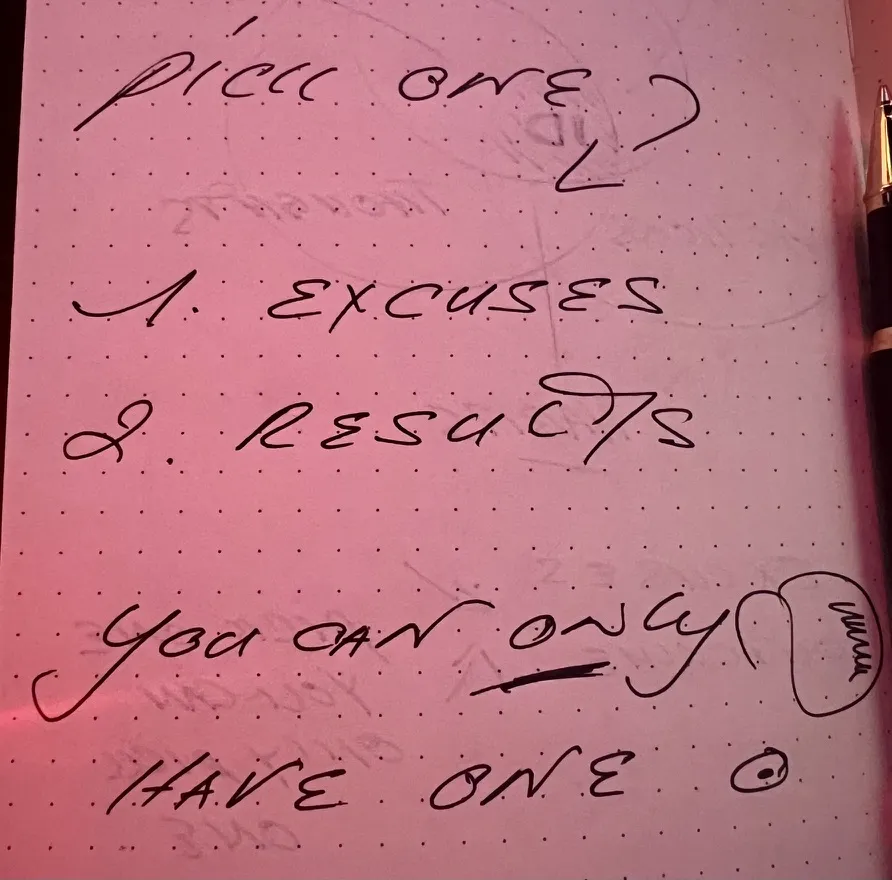 PICK ONE
1. EXCUSES
2. RESULTS
YOU CAN ONLY
HAVE ONE